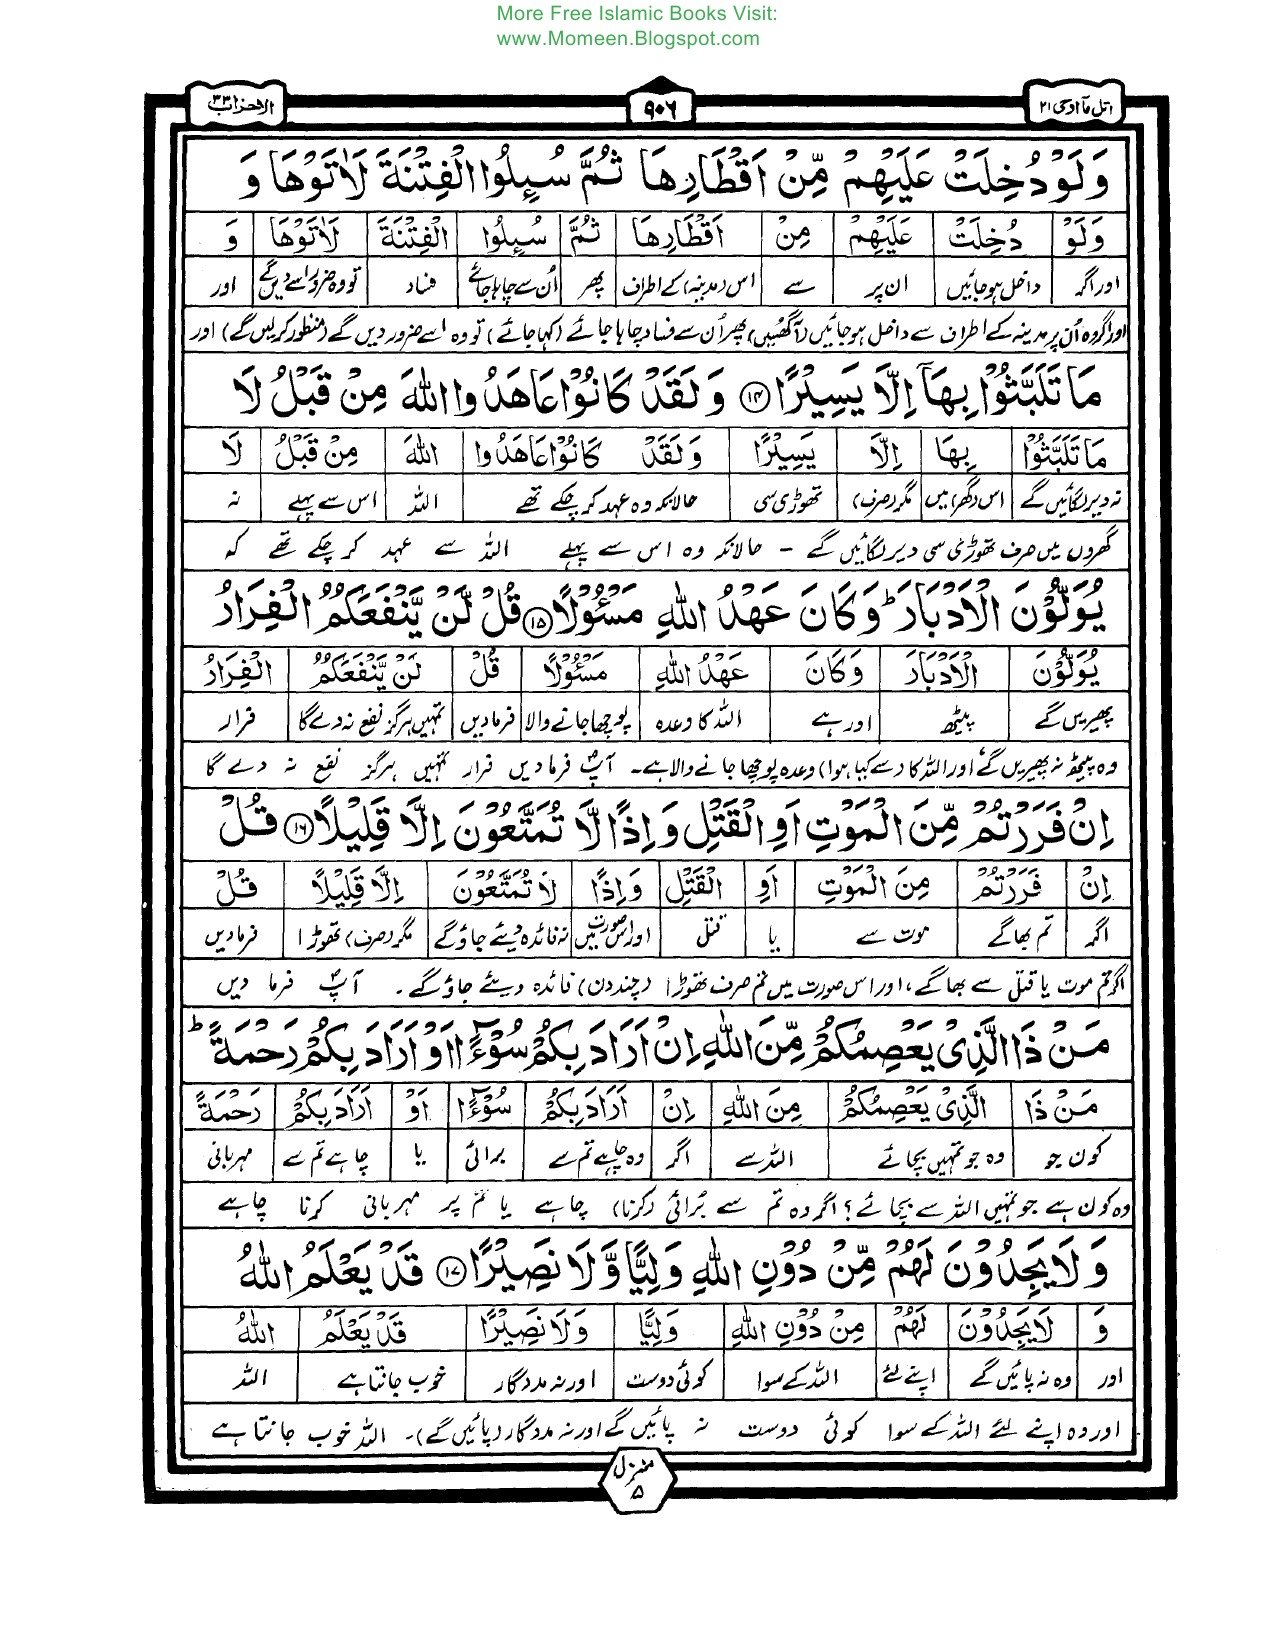 More Free Islamic Books Visit:
www.Momeen.Blogspot.com
اتل مآ اوحی ۲۱ ۹۰۶ الاحزاب ۳۳
وَلَوْ دُخِلَتْ عَلَيْهِمْ مِّنْ اَقْطَارِهَا ثُمَّ سُىِٕلُوا الْفِتْنَةَ لَاٰتَوْهَا وَ
وَلَوْ دُخِلَتْ عَلَيْهِمْ مِنْ اَقْطَارِهَا ثُمَّ سُىِٕلُوا الْفِتْنَةَ لَاٰتَوْهَا وَ
اور اگر داخل ہوجائیں ان پر سے اس (مدینہ) کے اطراف پھر اُن سے چاہا جائے فساد تو وہ ضرور اسے دیں گے اور
اور اگر وہ اُن پر مدینہ کے اطراف سے داخل ہوجائیں (آگھسیں) پھر اُن سے فساد چاہا جائے (کہا جائے) تو وہ اسے ضرور دیں گے (منظور کرلیں گے) اور
مَا تَلَبَّثُوْا بِهَاۤ اِلَّا يَسِيْرًا ۱۴ وَلَقَدْ كَانُوْا عَاهَدُوا اللّٰهَ مِنْ قَبْلُ لَا
مَا تَلَبَّثُوْا بِهَا اِلَّا يَسِيْرًا وَلَقَدْ كَانُوْا عَاهَدُوا اللّٰهَ مِنْ قَبْلُ لَا
نہ دیر لگائیں گے اس (گھر) میں مگر (صرف) تھوڑی سی حالانکہ وہ عہد کر چکے تھے اللہ اس سے پہلے نہ
گھروں میں صرف تھوڑی سی دیر لگائیں گے - حالانکہ وہ اس سے پہلے اللہ سے عہد کر چکے تھے کہ
يُوَلُّوْنَ الْاَدْبَارَ ؕ وَكَانَ عَهْدُ اللّٰهِ مَسْـُٔوْلًا ۱۵ قُلْ لَّنْ يَّنْفَعَكُمُ الْفِرَارُ
يُوَلُّوْنَ الْاَدْبَارَ وَكَانَ عَهْدُ اللّٰهِ مَسْـُٔوْلًا قُلْ لَنْ يَّنْفَعَكُمُ الْفِرَارُ
پھیریں گے پیٹھ اور ہے اللہ کا وعدہ پوچھا جانے والا فرمادیں تمہیں ہرگز نفع نہ دے گا فرار
وہ پیٹھ نہ پھیریں گے، اور اللہ کا (سے کیا ہوا) وعدہ پوچھا جانے والا ہے۔ آپؐ فرمادیں فرار تمہیں ہرگز نفع نہ دے گا
اِنْ فَرَرْتُمْ مِّنَ الْمَوْتِ اَوِ الْقَتْلِ وَاِذًا لَّا تُمَتَّعُوْنَ اِلَّا قَلِيْلًا ۱۶ قُلْ
اِنْ فَرَرْتُمْ مِنَ الْمَوْتِ اَوِ الْقَتْلِ وَاِذًا لَا تُمَتَّعُوْنَ اِلَّا قَلِيْلًا قُلْ
اگر تم بھاگے موت سے یا قتل اور اس صورت میں نہ فائدہ دیئے جاؤ گے مگر (صرف) تھوڑا فرمادیں
اگر تم موت یا قتل سے بھاگے، اور اس صورت میں تم صرف تھوڑا (چند دن) فائدہ دیئے جاؤ گے۔ آپؐ فرما دیں
مَنْ ذَا الَّذِيْ يَعْصِمُكُمْ مِّنَ اللّٰهِ اِنْ اَرَادَ بِكُمْ سُوْٓءًا اَوْ اَرَادَ بِكُمْ رَحْمَةً ؕ
مَنْ ذَا الَّذِيْ يَعْصِمُكُمْ مِنَ اللّٰهِ اِنْ اَرَادَ بِكُمْ سُوْٓءًا اَوْ اَرَادَ بِكُمْ رَحْمَةً
کون جو وہ جو تمہیں بچائے اللہ سے اگر وہ چاہے تم سے برائی یا چاہے تم سے مہربانی
وہ کون ہے جو تمہیں اللہ سے بچائے؟ اگر وہ تم سے بُرائی (کرنا) چاہے یا تم پر مہربانی کرنا چاہے
وَلَا يَجِدُوْنَ لَهُمْ مِّنْ دُوْنِ اللّٰهِ وَلِيًّا وَّلَا نَصِيْرًا ۱۷ قَدْ يَعْلَمُ اللّٰهُ
وَ لَا يَجِدُوْنَ لَهُمْ مِنْ دُوْنِ اللّٰهِ وَلِيًّا وَلَا نَصِيْرًا قَدْ يَعْلَمُ اللّٰهُ
اور وہ نہ پائیں گے اپنے لئے اللہ کے سوا کوئی دوست اور نہ مددگار خوب جانتا ہے اللہ
اور وہ اپنے لئے اللہ کے سوا کوئی دوست نہ پائیں گے اور نہ مددگار (پائیں گے)۔ اللہ خوب جانتا ہے
منزل
۵